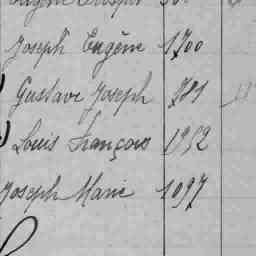 Joseph Eugène 1700
Gustave Joseph 781
Louis François 1952
Joseph Marie 1097